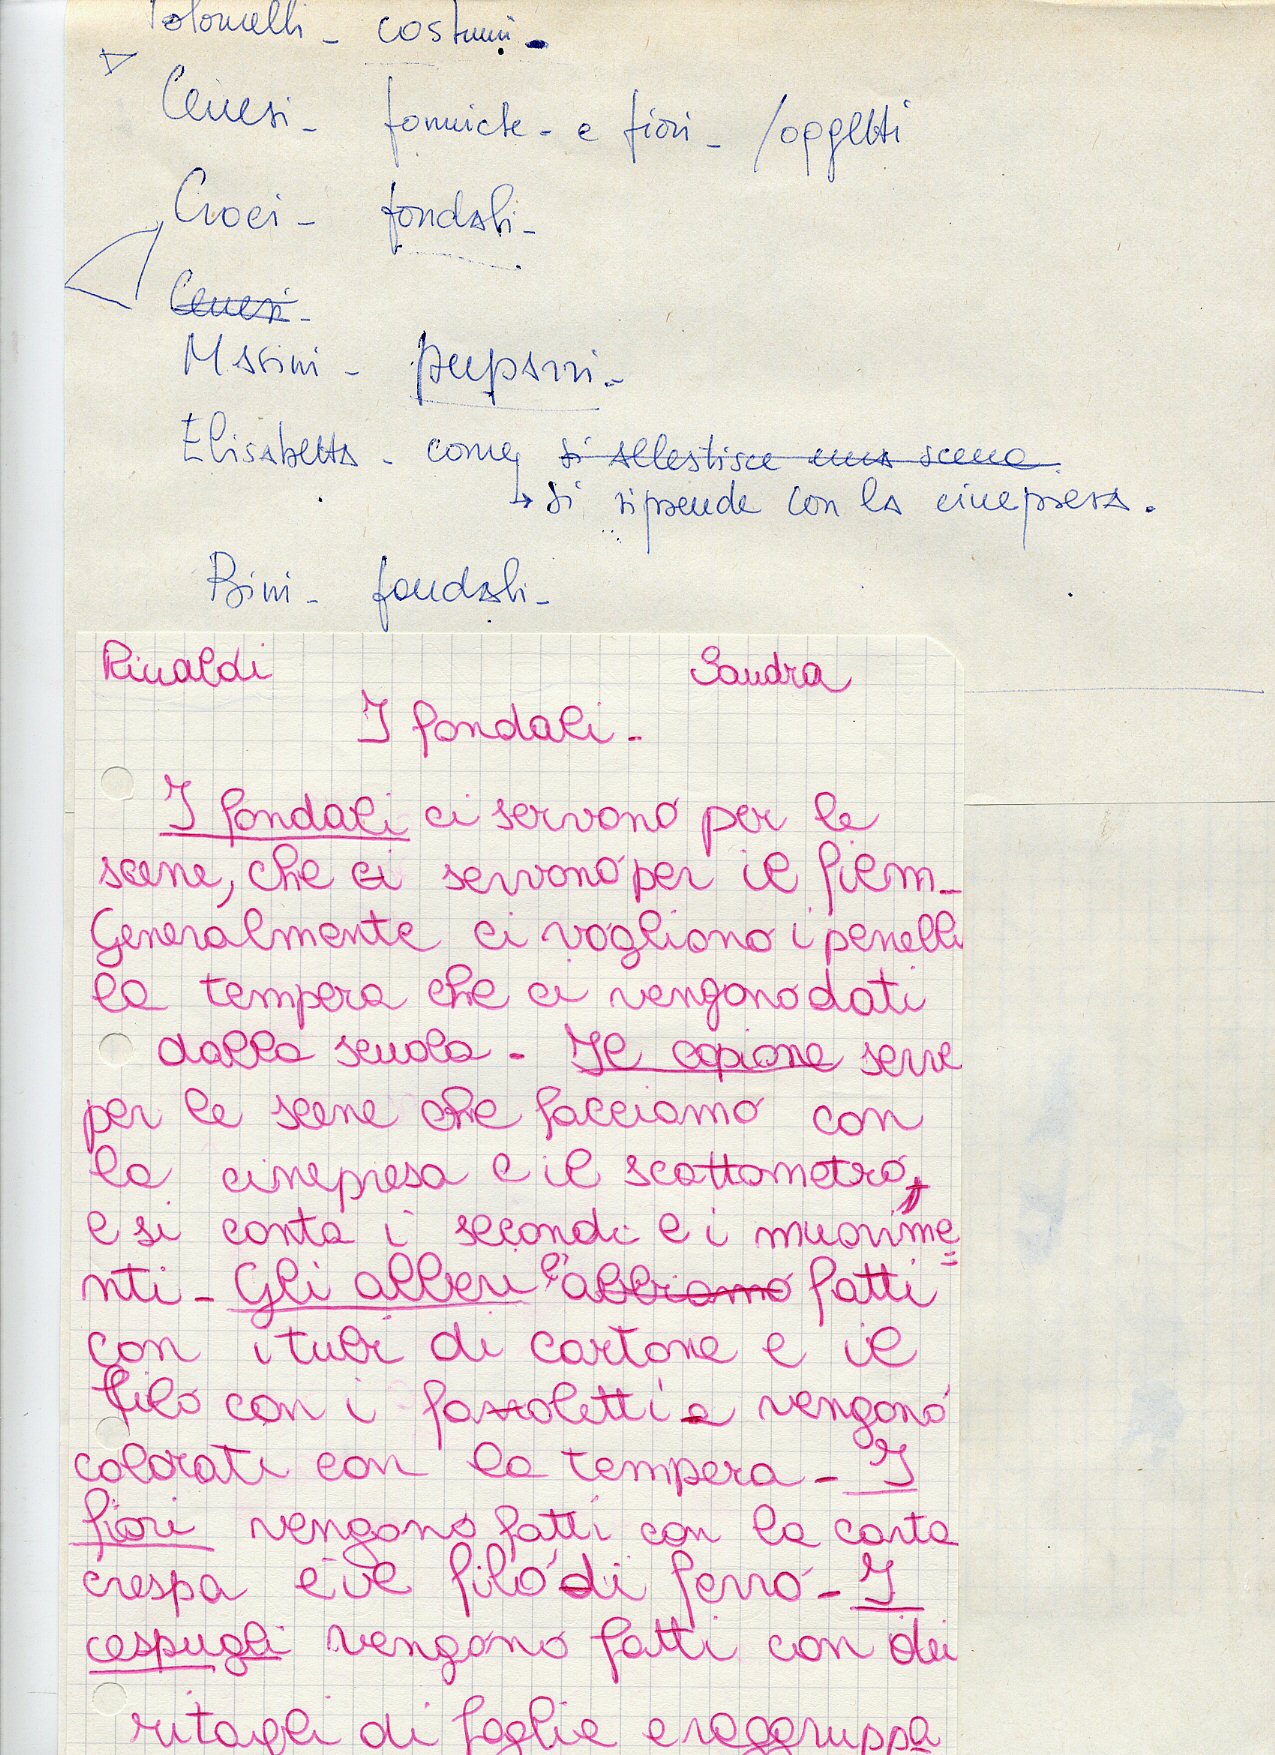 Tolomelli - costumi -
Cenesi - formiche - e fiori - / oggetti
Croci - fondali -
Cenesi -
Masini - pupazzi -
Elisabetta - come si allestisce una scena
si riprende con la cinepresa.
Bini - fondali -
Rinaldi Sandra
I fondali -
I fondali ci servono per le
scene, che ci servono per il film -
Generalmente ci vogliono i penelli
la tempera che ci vengono dati
dalla scuola - Il copione serve
per le scene che facciamo con
la cinepresa e il scattometro,
e si conta i secondi e i muovime=
nti - Gli alberi li abbiamo fatti
con i tubi di cartone e il
filo con i fazzoletti e vengono
colorati con la tempera - I
fiori vengono fatti con la carta
crespa e il filo di ferro - I
cespugli vengono fatti con dei
ritagli di foglie e raggruppa